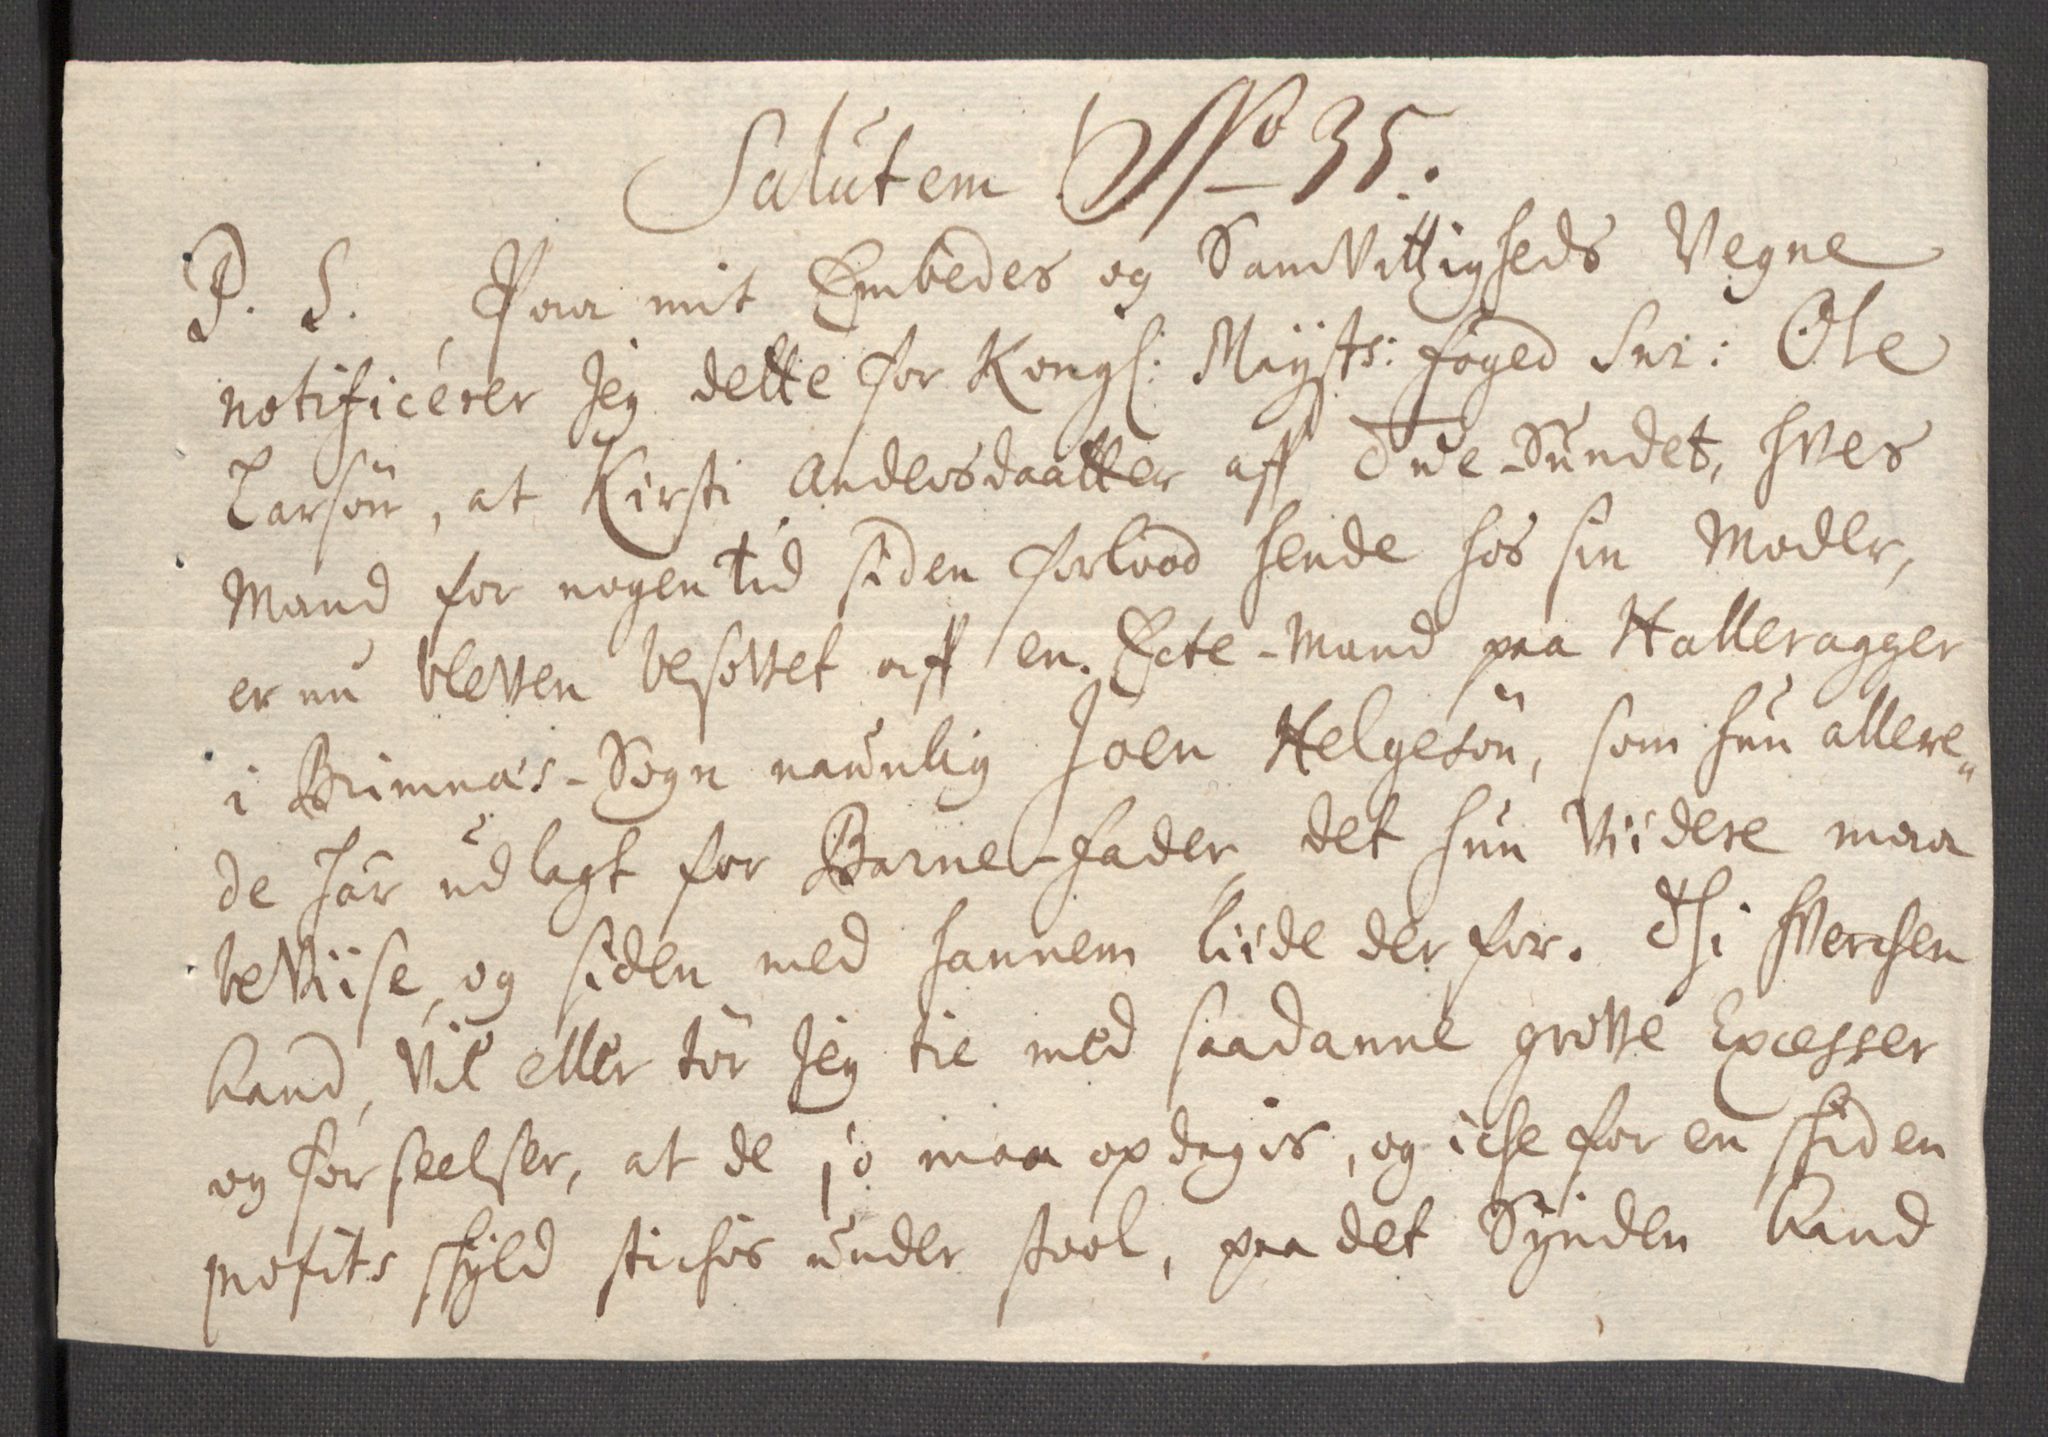 Salutem No 35.
P. S. Paa mit Embedes og SamVittigheds Vegne
notificerer Jeg dette for Kongl: Mayts: foged Snr: Ole
Larsön, at Kirsti Andersdaatter aff Sundet, hves
Mand for nogen tid siden forlood hende hos sin Moder,
er nu bleVen besoVet aff en Ecte-Mand paa Halleragger
i Brimnæs-Sogn naunlig Joen Helgesön, som hun allere„
de har udlagt for Barne-fader, det hun Viidere maa
beViise, og siden med hannem liide der for. Thi hVerchen
kand, Vil eller tör Jeg tie med saadanne groVe Excesser
og forseelser, at de jo maa opdagis, og iche for en skiden
profits skyld stichis under stool, paa det Synden kand